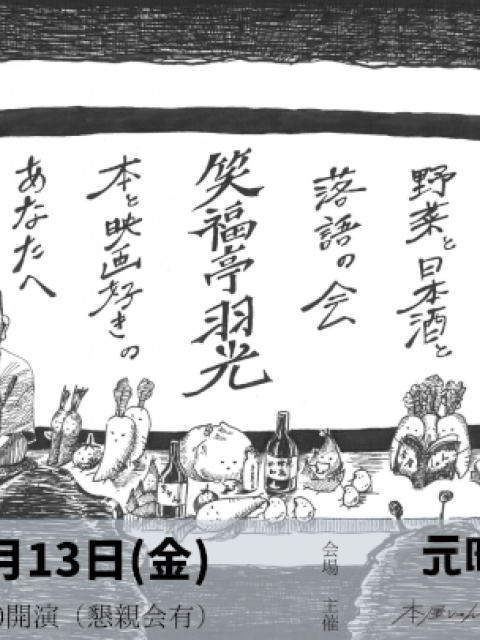 野菜と日本酒と
落語の会
笑福亭羽光
本と映画好きの
あなたへ
月13日(金)
開演（懇親会有）
会場
主催
元